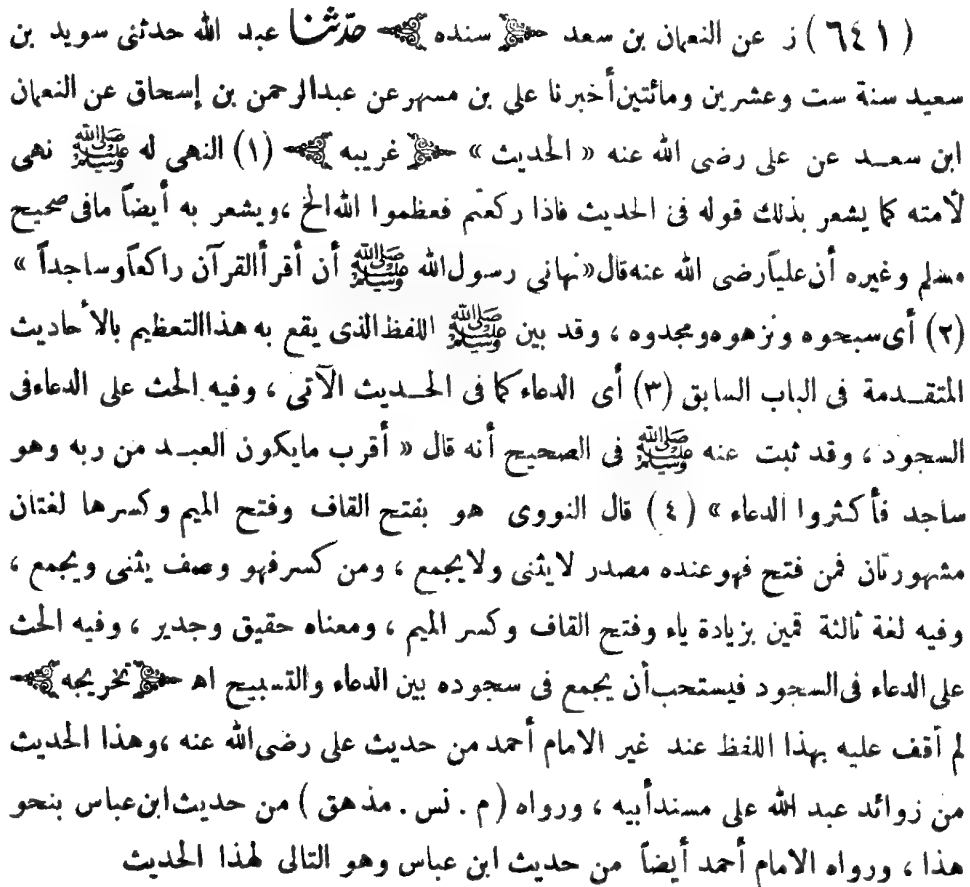 ( ٦٤١ ) ز عن النعمان بن سعد ﴿ سنده ﴾ حدثنا عبد الله حدثنى سويد بن
سعيد سنة ست وعشرين ومائتين أخبرنا على بن مسهر عن عبدالرحمن بن إسحاق عن النعمان
ابن سعـد عن على رضى الله عنه « الحديث » ﴿ غريبه ﴾ (١) النهى له ﷺ نهى
لأمته كما يشعر بذلك قوله فى الحديث فاذا ركعتم فعظموا الله الخ ، ويشعر به أيضاً مافى صحيح
مسلم وغيره أن علياً رضى الله عنه قال «نهانى رسول الله ﷺ أن أقرأ القرآن راكعاً وساجداً »
(٢) أى سبحوه ونزهوه ومجدوه ، وقد بين ﷺ اللفظ الذى يقع به هذا التعظيم بالأحاديث
المتقـدمة فى الباب السابق (٣) أى الدعاء كما فى الحـديث الآتى ، وفيه الحث على الدعاء فى
السجود ، وقد ثبت عنه ﷺ فى الصحيح أنه قال « أقرب مايكون العبـد من ربه وهو
ساجد فأكثروا الدعاء » ( ٤ ) قال النووى هو بفتح القاف وفتح الميم وكسرها لغتان
مشهورتان فمن فتح فهو عنده مصدر لايثنى ولايجمع ، ومن كسر فهو وصف يثنى ويجمع ،
وفيه لغة ثالثة قمين بزيادة ياء وفتح القاف وكسر الميم ، ومعناه حقيق وجدير ، وفيه الحث
على الدعاء فى السجود فيستحب أن يجمع فى سجوده بين الدعاء والتسبيح اهـ ﴿ تخريجه ﴾
لم أقف عليه بهذا اللفظ عند غير الامام أحمد من حديث على رضى الله عنه ، وهذا الحديث
من زوائد عبد الله على مسند أبيه ، ورواه ( م . نس . مذ هق ) من حديث ابن عباس بنحو
هذا ، ورواه الامام أحمد أيضاً من حديث ابن عباس وهو التالى لهذا الحديث